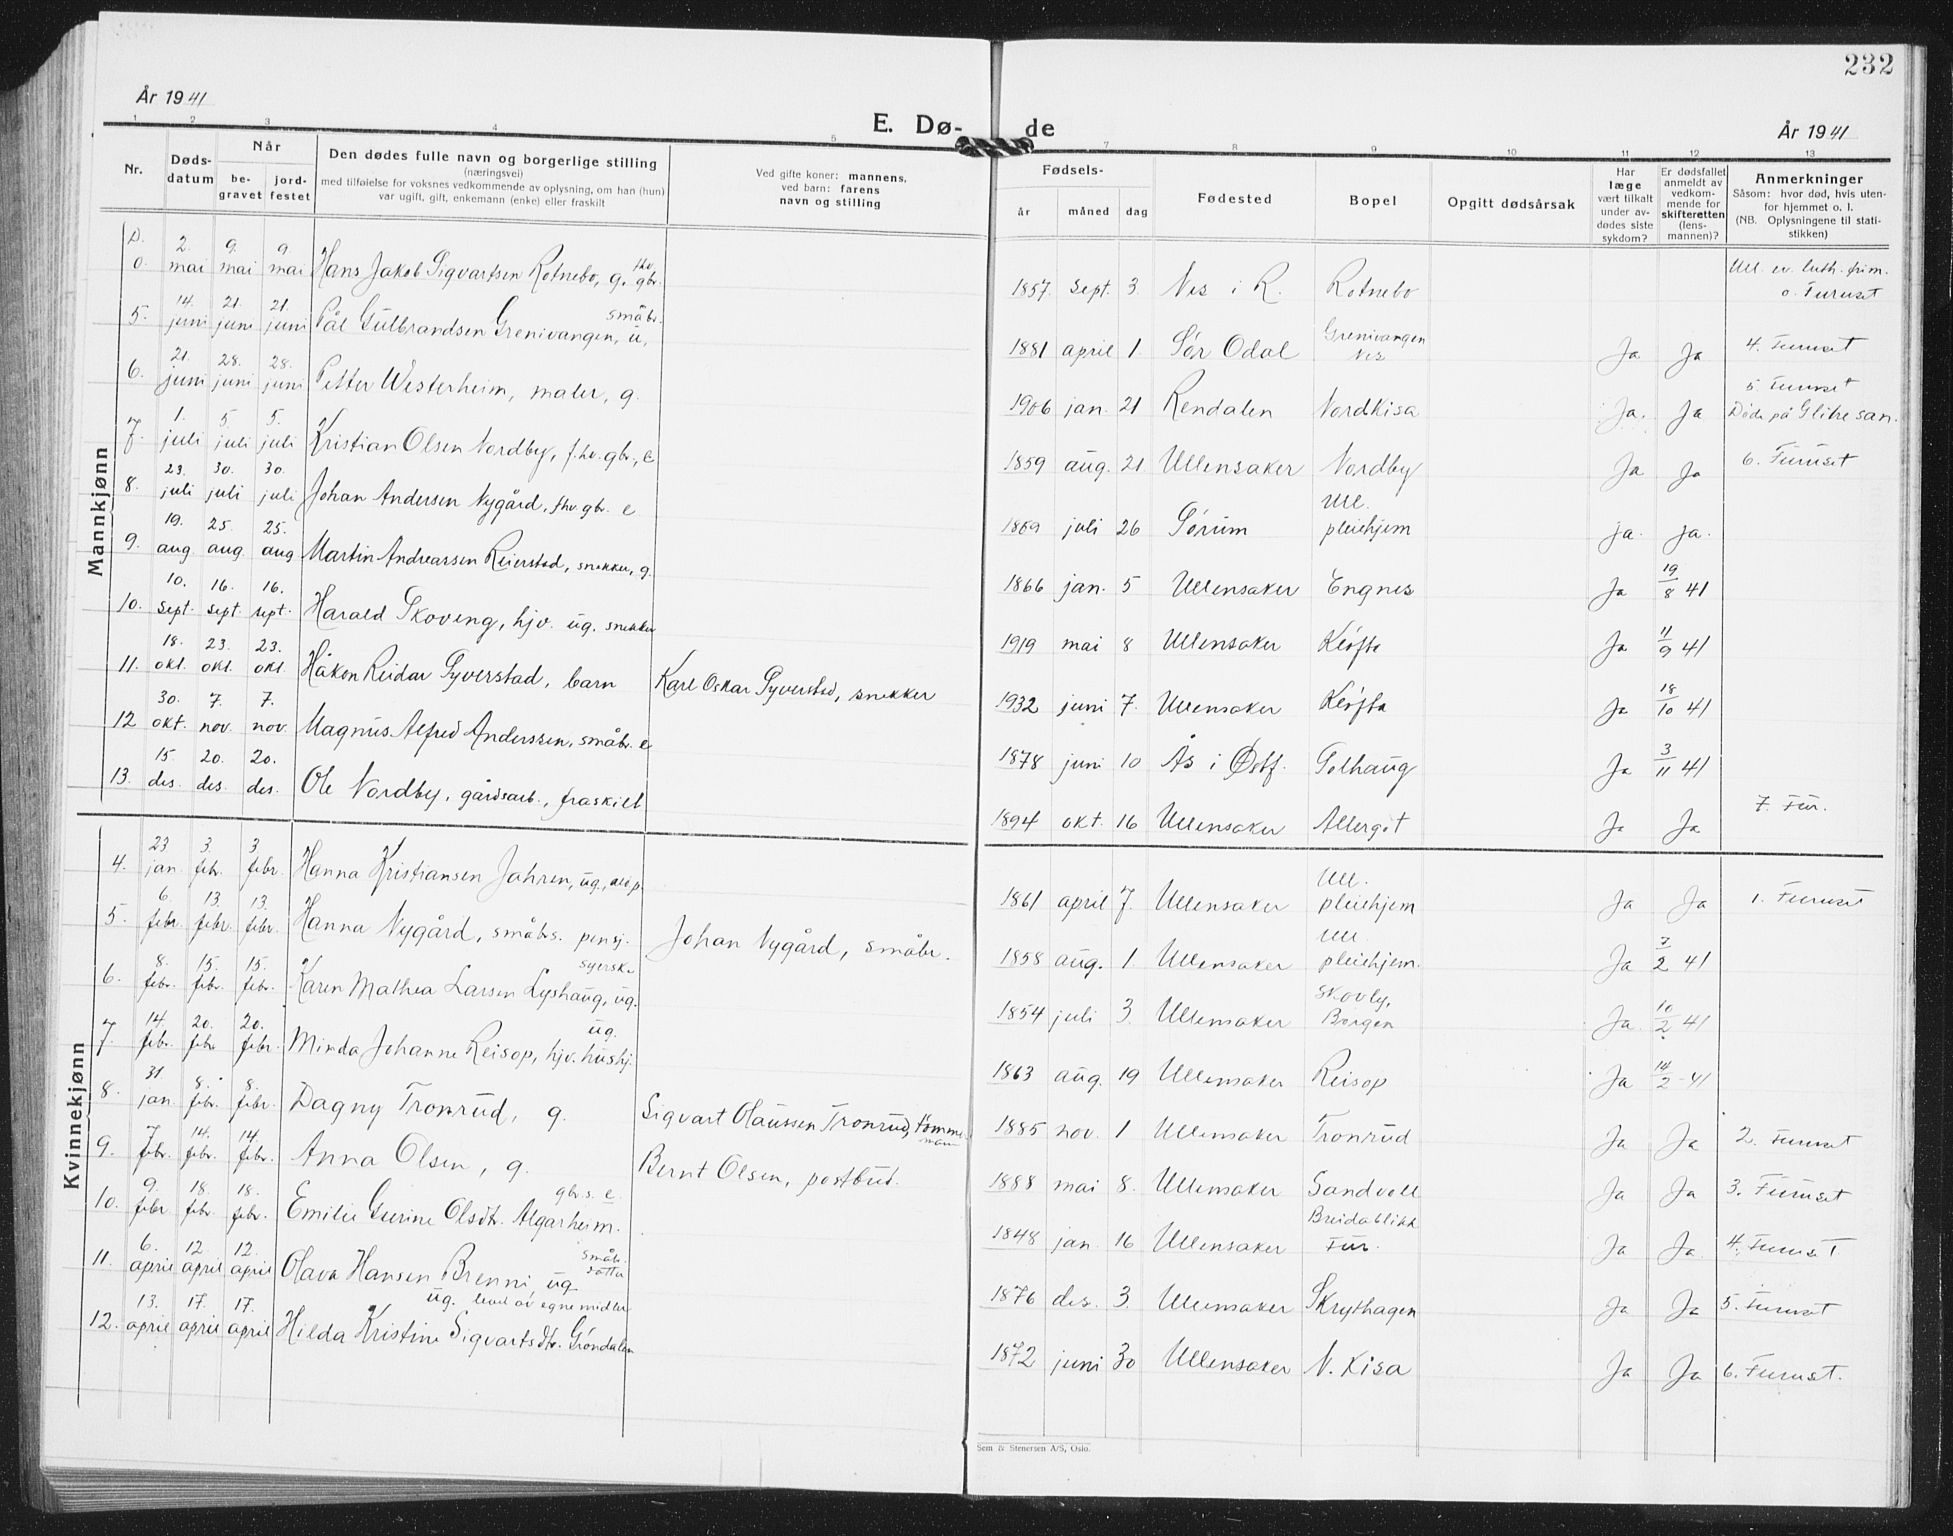 232
År 1941
E. Dø-
de
År 1941
1 2 3 4 5 7 8 9 10 11 12 13
Nr.
Døds-
datum
Når
be-
gravet
jord-
festet
Den dødes fulle navn og borgerlige stilling
(næringsvei)
med tilføielse for voksnes vedkommende av oplysning, om han (hun)
var ugift, gift, enkemann (enke) eller fraskilt
Ved gifte koner: mannens,
ved barn: farens
navn og stilling
Fødsels-
år måned dag
Fødested
Bopel
Opgitt dødsårsak
Har
læge
vært tilkalt
under av-
dødes siste
sykdom?
Er dødsfallet
anmeldt av
vedkom-
mende for
skifteretten
(lens-
mannen)?
Anmerkninger
Såsom: hvor død, hvis uten-
for hjemmet o. l.
(NB. Oplysningene til stati-
stikken)
Mannkjønn
D. o. 2. mai 9. mai 9. mai Hans Jakob Sigvartsen Rotnebo, g. fhv. gbr. 1857. sept. 3. Nes i R. Rotnebo Ull. ev. luth. frim.
o. Furuset
5. 14. juni 21. juni 21. juni Pål Gulbrandsen Grenivangen, u, småbr. 1881 april 1. Sør Odal Grenivangen Nes Ja Ja 4. Furuset
6. 21. juni 28. juni 28. juni Petter Westerheim, maler, g. 1906 jan. 21 Rendalen Nordkisa Ja. Ja 5. Furuset
Død på Glitre san.
7. 1. juli 5. juli 5. juli Kristian Olsen Nordby, f.hv. gbr., e 1859 aug. 21 Ullensaker Nordby Ja Ja 6. Furuset
8. 23. juli 30. juli 30. juli Johan Andersen Nygård, fhv. gbr. e 1869 juli 26 Sørum Ull. pleiehjem Ja. Ja.
9. 19. aug. 25. aug. 25. aug Martin Andreassen Reierstad, snekker, g. 1866 jan. 5 Ullensaker Engnes Ja 19/8 41
10. 10. sept. 16. sept. 16. sept. Harald Skoveng, hjv. ug. snekker 1919 mai 8 Ullensaker Kløfta Ja 11/9 41
11. 18. okt. 23. okt. 23. okt. Håkon Reidar Gyverstad, barn Karl Oskar Gyverstad, snekker 1932 juni 7. Ullensaker Kløfta Ja 18/10 41
12 30. okt. 7. nov. 7. nov. Magnus Alfred Anderssen, småbr. e 1878 juni 10 Ås i Østf. Solhaug Ja 3/11 41
13. 15. des. 20. des. 20. des. Ole Nordby, gårdsarb., fraskilt 1894 okt. 16 Ullensaker Allergot Ja Ja 7. Fur.
Kvinnekjønn
4. 23 jan. 3. febr. 3 febr. Hanna Kristiansen Jahren, ug., 1861 april 7. Ullensaker Ull. pleiehjem Ja Ja 1. Furuset
5. 6. febr. 13. febr. 13. febr. Hanna Nygård, småbrs. pensj. Johan Nygård, småbr. 1858 aug. 1 Ullensaker Ull pleiehjem. Ja 7/2 41
6. 8. febr. 15. febr. 15. febr. Karen Mathea Larsen Lyshaug, ug. syerske 1854 juli 3. Ullensaker Skovly, Borgen Ja 10/2 41
7. 14. febr. 20. febr 20. febr. Minda Johanne Reisop, hjv. hushj. ug. 1863 aug. 19 Ullensaker Reisop Ja 14/2 41
8. 31 jan 8. febr. 8. febr. Dagny Tronrud, g. Sigvart Olaussen Tronrud, tømmermann 1885 nov. 1 Ullensaker Tronrud Ja Ja 2. Furuset
9. 7. febr. 14. febr. 14. febr. Anna Olsen, g. Bernt Olsen, postbud. 1888 mai 8. Ullensaker Sandvoll Ja Ja 3. Furuset
10. 9. febr 18. febr. 18. febr. Emilie Gurine Olsdtr. Algarheim. gbr.s. e. 1848 jan. 16 Ullensaker Breidablikk Fur. Ja Ja 4. Furuset
11. 6. april 12. april 12. april Olava Hansen Brenni ug småbr. datter 1876 des. 3. Ullensaker Skrythagen Ja Ja 5. Furuset
12. 13. april 17. april 17. april Hilda Kristine Sigvartsdtr. Grøndalen ug. levet av egne midler 1872 juni 30 Ullensaker N. Kisa Ja Ja 6. Furuset.
Sem & Stenersen A/S, Oslo.